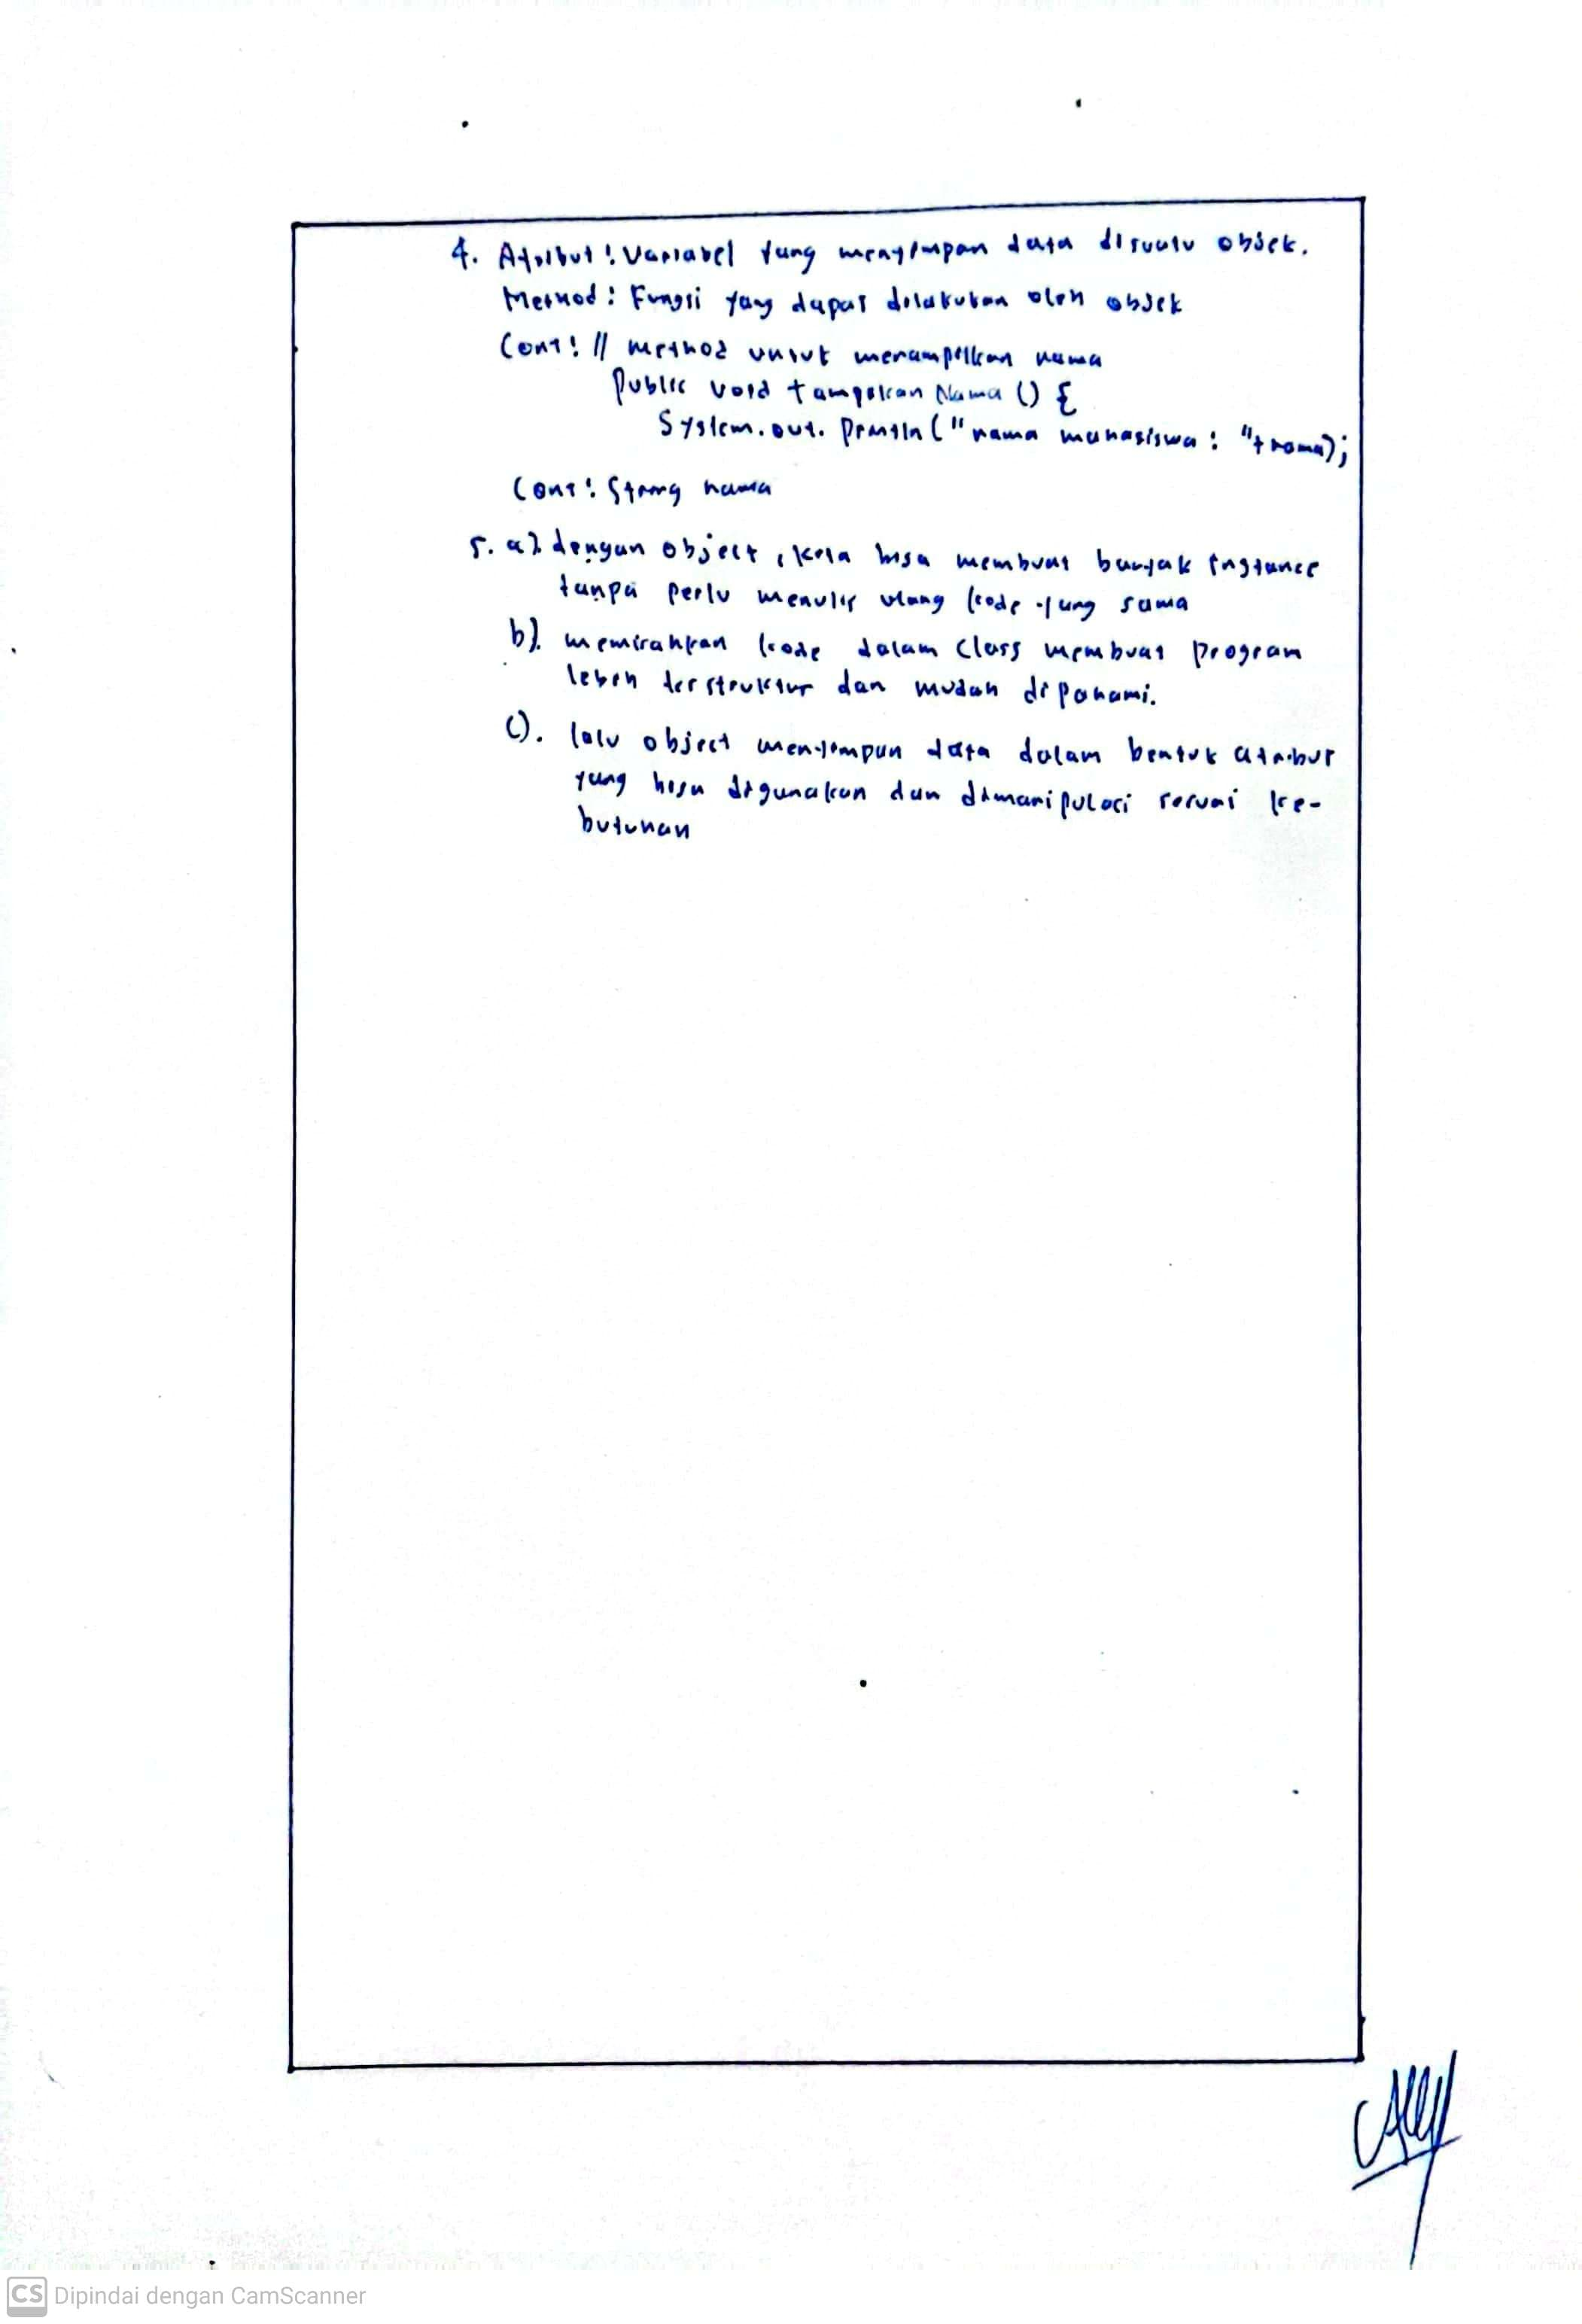 4. Atribut : Variabel yang menyimpan data disuatu objek.
Method : Fungsi yang dapat dilakukan oleh objek
Cont : // method untuk menampilkan nama
Public void tampilkan Nama () {
System.out. Println ("nama mahasiswa : "+ nama);
Cont : String nama
5. a). dengan object, kita bisa membuat banyak instance
tanpa perlu menulis ulang kode yang sama
b). memisahkan kode dalam class membuat program
lebih terstruktur dan mudah dipahami.
c). lalu object menyimpan data dalam bentuk atribut
yang bisa digunakan dan dimanipulasi sesuai ke-
butuhan
CS Dipindai dengan CamScanner